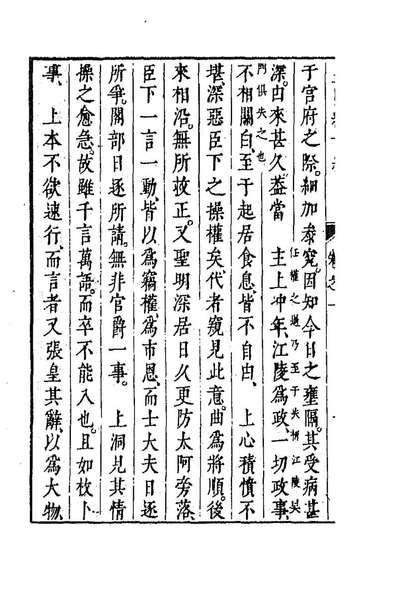 于宫府之際。細加叅究。因知今日之壅隔。其受病甚
任權之過乃至于失柄江陵吳
深。由來甚久。葢當　主上冲年。江陵爲政。一切政事、
門俱失之也
不相關白。至于起居食息。皆不自由。　上心積憤不
堪。深惡臣下之操權矣。代者窺見此意。曲爲將順。後
來相沿。無所挍正。又聖明深居日久。更防太阿旁落。
臣下一言一動。皆以爲竊權。爲市恩。而士大夫日逐
所爭。閣部日逐所請。無非官爵一事。　上洞見其情
操之愈急。故雖千言萬語。而卒不能入也。且如枚卜
舉、　上本不欲速行。而言者又張皇其辭。以爲大物、